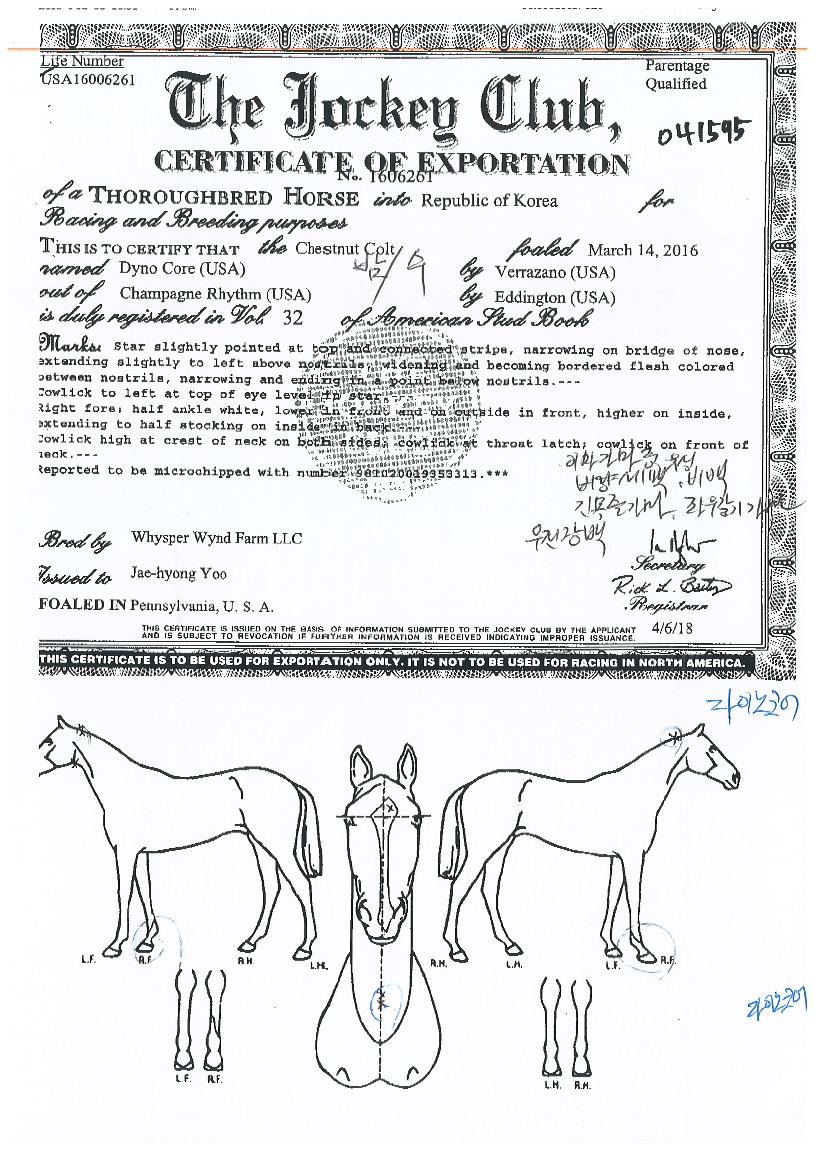 Life Number
USA16006261
Parentage
Qualified
The Jockey Club,
041595
CERTIFICATE OF EXPORTATION
No. 1606261
of a THOROUGHBRED HORSE into Republic of Korea for
Racing and Breeding purposes
THIS IS TO CERTIFY THAT the Chestnut Colt foaled March 14, 2016
named Dyno Core (USA) by Verrazano (USA)
out of Champagne Rhythm (USA) by Eddington (USA)
is duly registered in Vol. 32 of American Stud Book
Marks: Star slightly pointed at top and connected stripe, narrowing on bridge of nose,
extending slightly to left above nostrils, widening and becoming bordered flesh colored
between nostrils, narrowing and ending in a point below nostrils.---
Cowlick to left at top of eye level in star.
Right fore: half ankle white, lower in front and on outside in front, higher on inside,
extending to half stocking on inside in back.---
Cowlick high at crest of neck on both sides; cowlick at throat latch; cowlick on front of
neck.---
Reported to be microchipped with number 981020019353313.***
Bred by Whysper Wynd Farm LLC
Issued to Jae-hyong Yoo
Secretary
Rick L. Bailey
Registrar
FOALED IN Pennsylvania, U. S. A.
THIS CERTIFICATE IS ISSUED ON THE BASIS OF INFORMATION SUBMITTED TO THE JOCKEY CLUB BY THE APPLICANT
AND IS SUBJECT TO REVOCATION IF FURTHER INFORMATION IS RECEIVED INDICATING IMPROPER ISSUANCE.
4/6/18
THIS CERTIFICATE IS TO BE USED FOR EXPORTATION ONLY. IT IS NOT TO BE USED FOR RACING IN NORTH AMERICA.
L.F. R.F. R.H. L.H. R.H. L.H. L.F. R.F.
L.F. R.F. L.H. R.H.